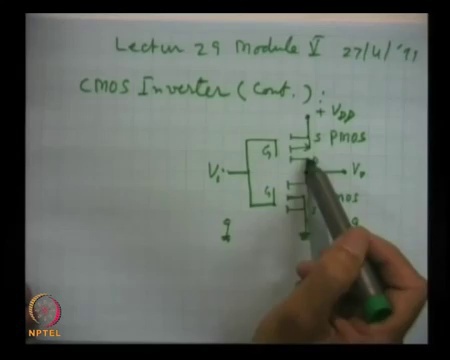 Lectur 29 Module V 27/4/'91
CMOS Inverter (Cont.) :
+ VDD
S PMOS
G
Vi
Vo
G
MOS
NPTEL